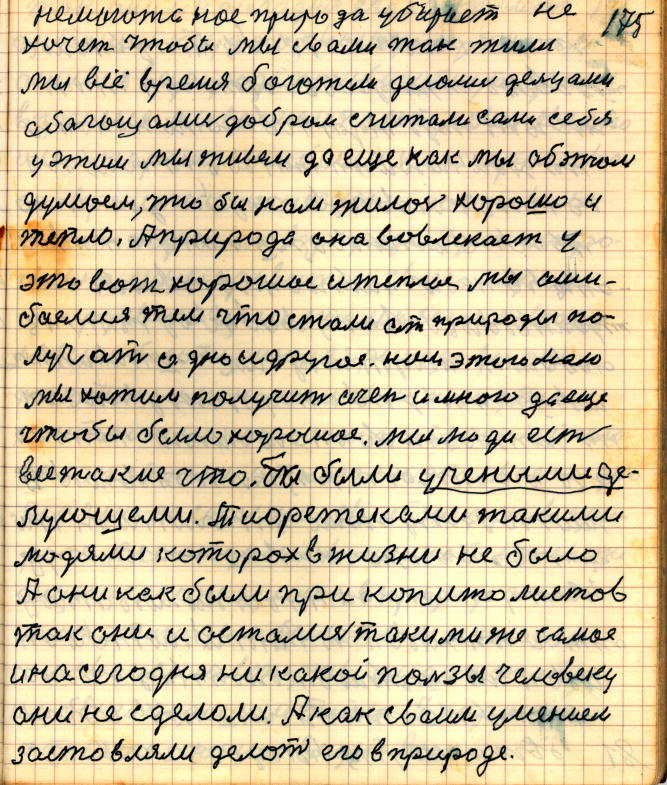 немогота ное природа убирает не 175
хочет чтобы мы свами так жили
мы всё время боготели делами делцами
абагощалис добром считали сами себя
у этом мы живем да еще как мы обэтом
думаем, што бы нам жилос хорошо и
тепло. А природа она вовлекает у
это вот хорошое итеплое мы оши-
баемся тем что стали от природы по-
лучат одно идругое. нам этого мало
мы хотим получит очен имного да еще
чтобы было хорошое. мы люди ест
все такие что. бы были учеными де-
лующеми. Тиоретеками такими
людями которох в жизни не было
А они как были при копитолистов
так они и осталис такими же самое
и на сегодня ни какой ползы человеку
они не сделоли. А как своим умением
застовляли делот его в природе.